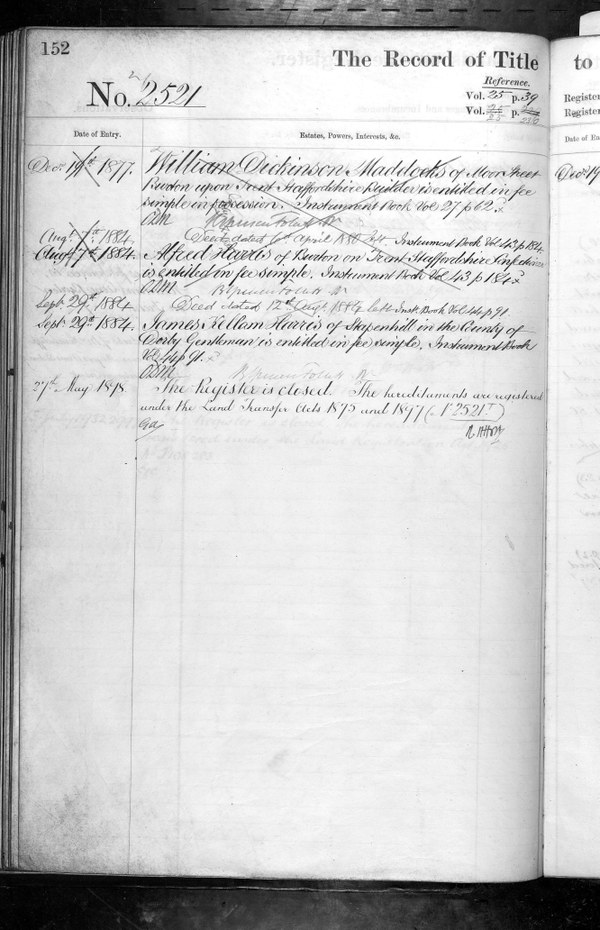 152
The Record of Title
to
No. 2521
Reference.
Vol. 25 p. 39
Vol. 25 p.
Register
Register
Date of Entry.
Estates, Powers, Interests, &c.
Date of En
Decr. 19th 1877.
William Dickinson Maddocks of Moor Street
Burton upon Trent Staffordshire Builder is entitled in fee
simple in possession. Instrument Book Vol 27 p 62
Decr 19
Augt. 7th 1884.
Deed dated 6th April 1880 Instrument Book Vol 43 p 184
Augt 7th 1884
Alfred Harris of Burton on Trent Staffordshire
is entitled in fee simple. Instrument Book Vol 43 p 184
Sept. 29th 1884
Deed dated 12th Augt 1884 Inst. Book Vol 44 p 91.
Sept. 29th 1884.
James Kellam Harris of Stapenhill in the County of
Derby Gentleman is entitled in fee simple. Instrument Book
Vol 44 p 91.
27th May 1898
The Register is closed. The hereditaments are registered
under the Land Transfer Acts 1875 and 1897 (No 2521)